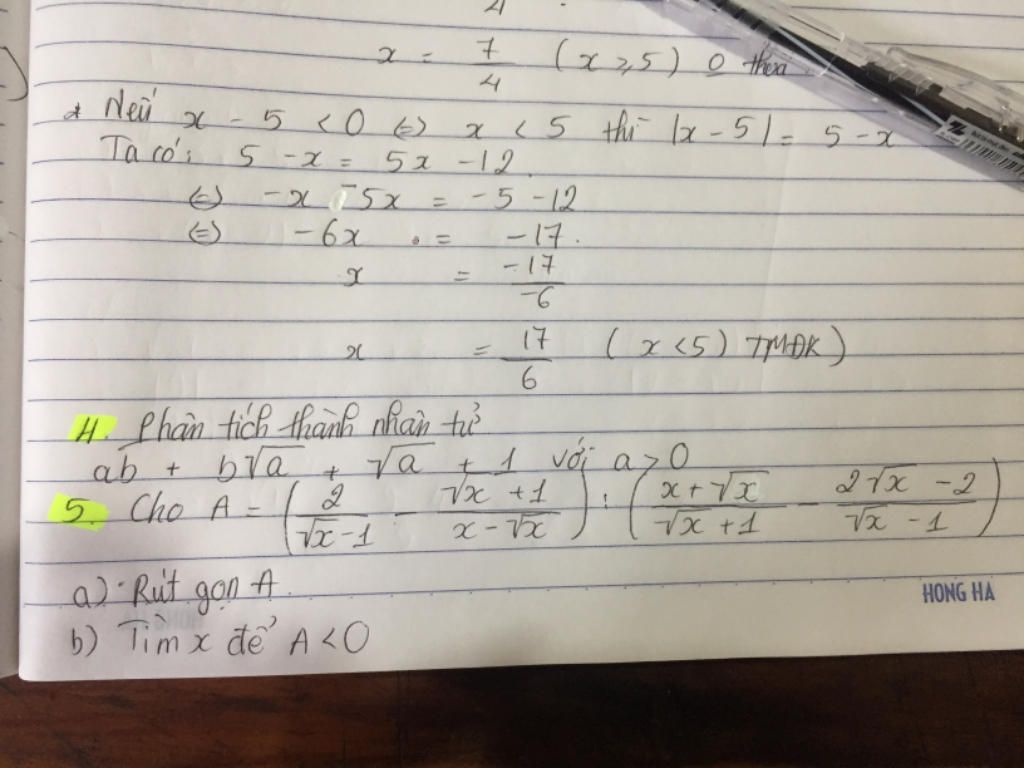 4
x = 7/4 (x ≥ 5) 0 thỏa
* Nếu x - 5 < 0 ⇔ x < 5 thì |x - 5| = 5 - x
Ta có: 5 - x = 5x - 12
⇔ -x - 5x = -5 - 12
⇔ -6x = -17.
x = -17/-6
x = 17/6 (x < 5) TMĐK)
4. Phân tích thành nhân tử
ab + b√a + √a + 1 với a > 0
5. Cho A = (2/(√x - 1) - (√x + 1)/(x - √x)) : ((x + √x)/(√x + 1) - (2√x - 2)/(√x - 1))
a) Rút gọn A.
HONG HA
b) Tìm x để A < 0